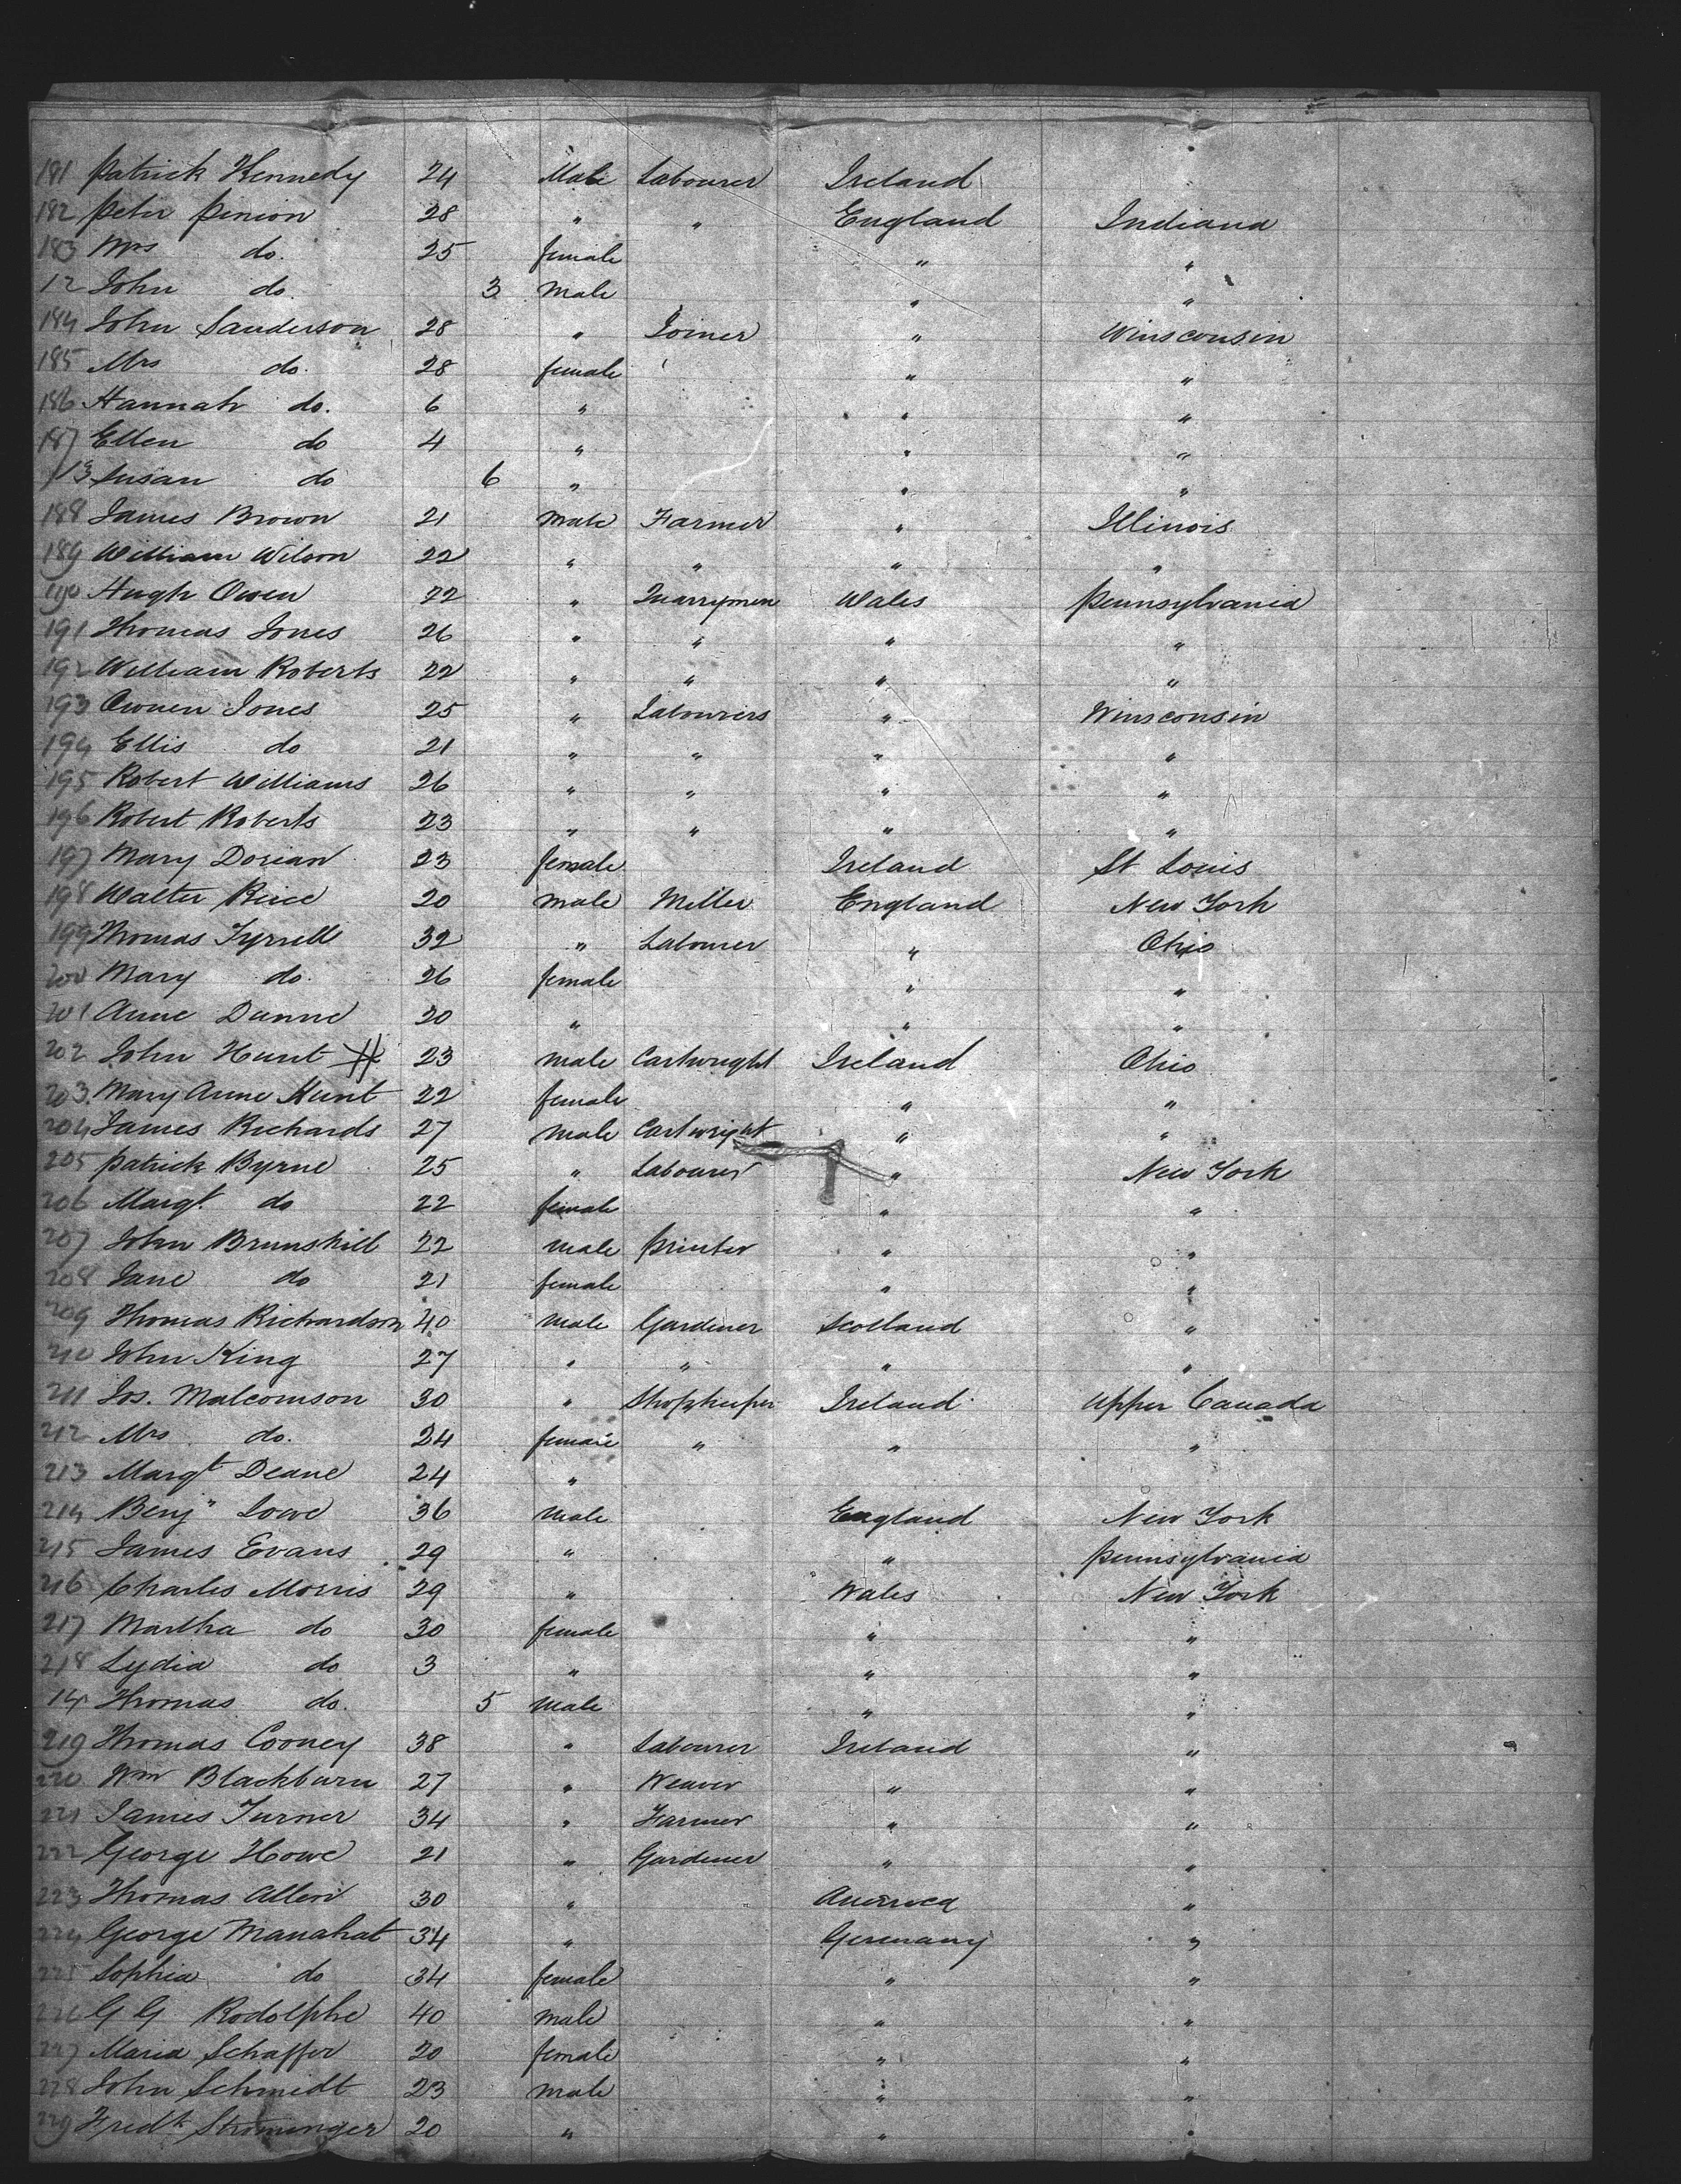 181 Patrick Kennedy 24 Male Labourer Ireland
182 Peter Pinion 28 " " England Indiana
183 Mrs do. 25 female " "
12 John do. 3 Male " "
184 John Sanderson 28 " Joiner " Winsconsin
185 Mrs do. 28 female " "
186 Hannah do. 6 " " "
187 Ellen do 4 " " "
13 Susan do 6 " " "
188 James Brown 21 Male Farmer " Illinois
189 William Wilson 22 " " " "
190 Hugh Owen 22 " Quarrymen Wales Pennsylvania
191 Thomas Jones 26 " " " "
192 William Roberts 22 " " " "
193 Owen Jones 25 " Labourers " Winsconsin
194 Ellis do 21 " " " "
195 Robert Williams 26 " " " "
196 Robert Roberts 23 " " " "
197 Mary Dorian 23 female Ireland St Louis
198 Walter 20 male Miller England New York
199 Thomas Tyrrell 32 " Labourer " Ohio
200 Mary do. 26 female " "
201 Anne Dunne 20 " " "
202 John Hunt 23 male Cartwright Ireland Ohio
203 Mary Anne Hunt 22 female " "
204 James Richards 27 Male Cartwright " "
205 Patrick Byrne 25 " Labourer " New York
206 Margt. do 22 female " "
207 John Brunskill 22 Male Printer " "
208 Jane do 21 female " "
209 Thomas Richardson 40 Male Gardener Scotland "
210 John King 27 " " " "
211 Jos. Malcomson 30 " Shopkeeper Ireland Upper Canada
212 Mrs do. 24 female " " "
213 Margt Deane 24 "
214 Benjn Lowe 36 Male England New York
215 James Evans 29 " " Pennsylvania
216 Charles Morris 29 " Wales New York
217 Martha do 30 female " "
218 Lydia do 3 " " "
14 Thomas do. 5 Male " "
219 Thomas Cooney 38 " Labourer Ireland "
220 Wm Blackburn 27 " Weaver " "
221 James Turner 34 " Farmer " "
222 George Howe 21 " Gardener " "
223 Thomas Allen 30 " America "
224 George Manahat 34 " Germany "
225 Sophia do 34 female " "
226 G G Rodolphe 40 Male " "
227 Maria Schaffer 20 female " "
228 John Schmidt 23 Male " "
229 Fredk Strominger 20 " " "